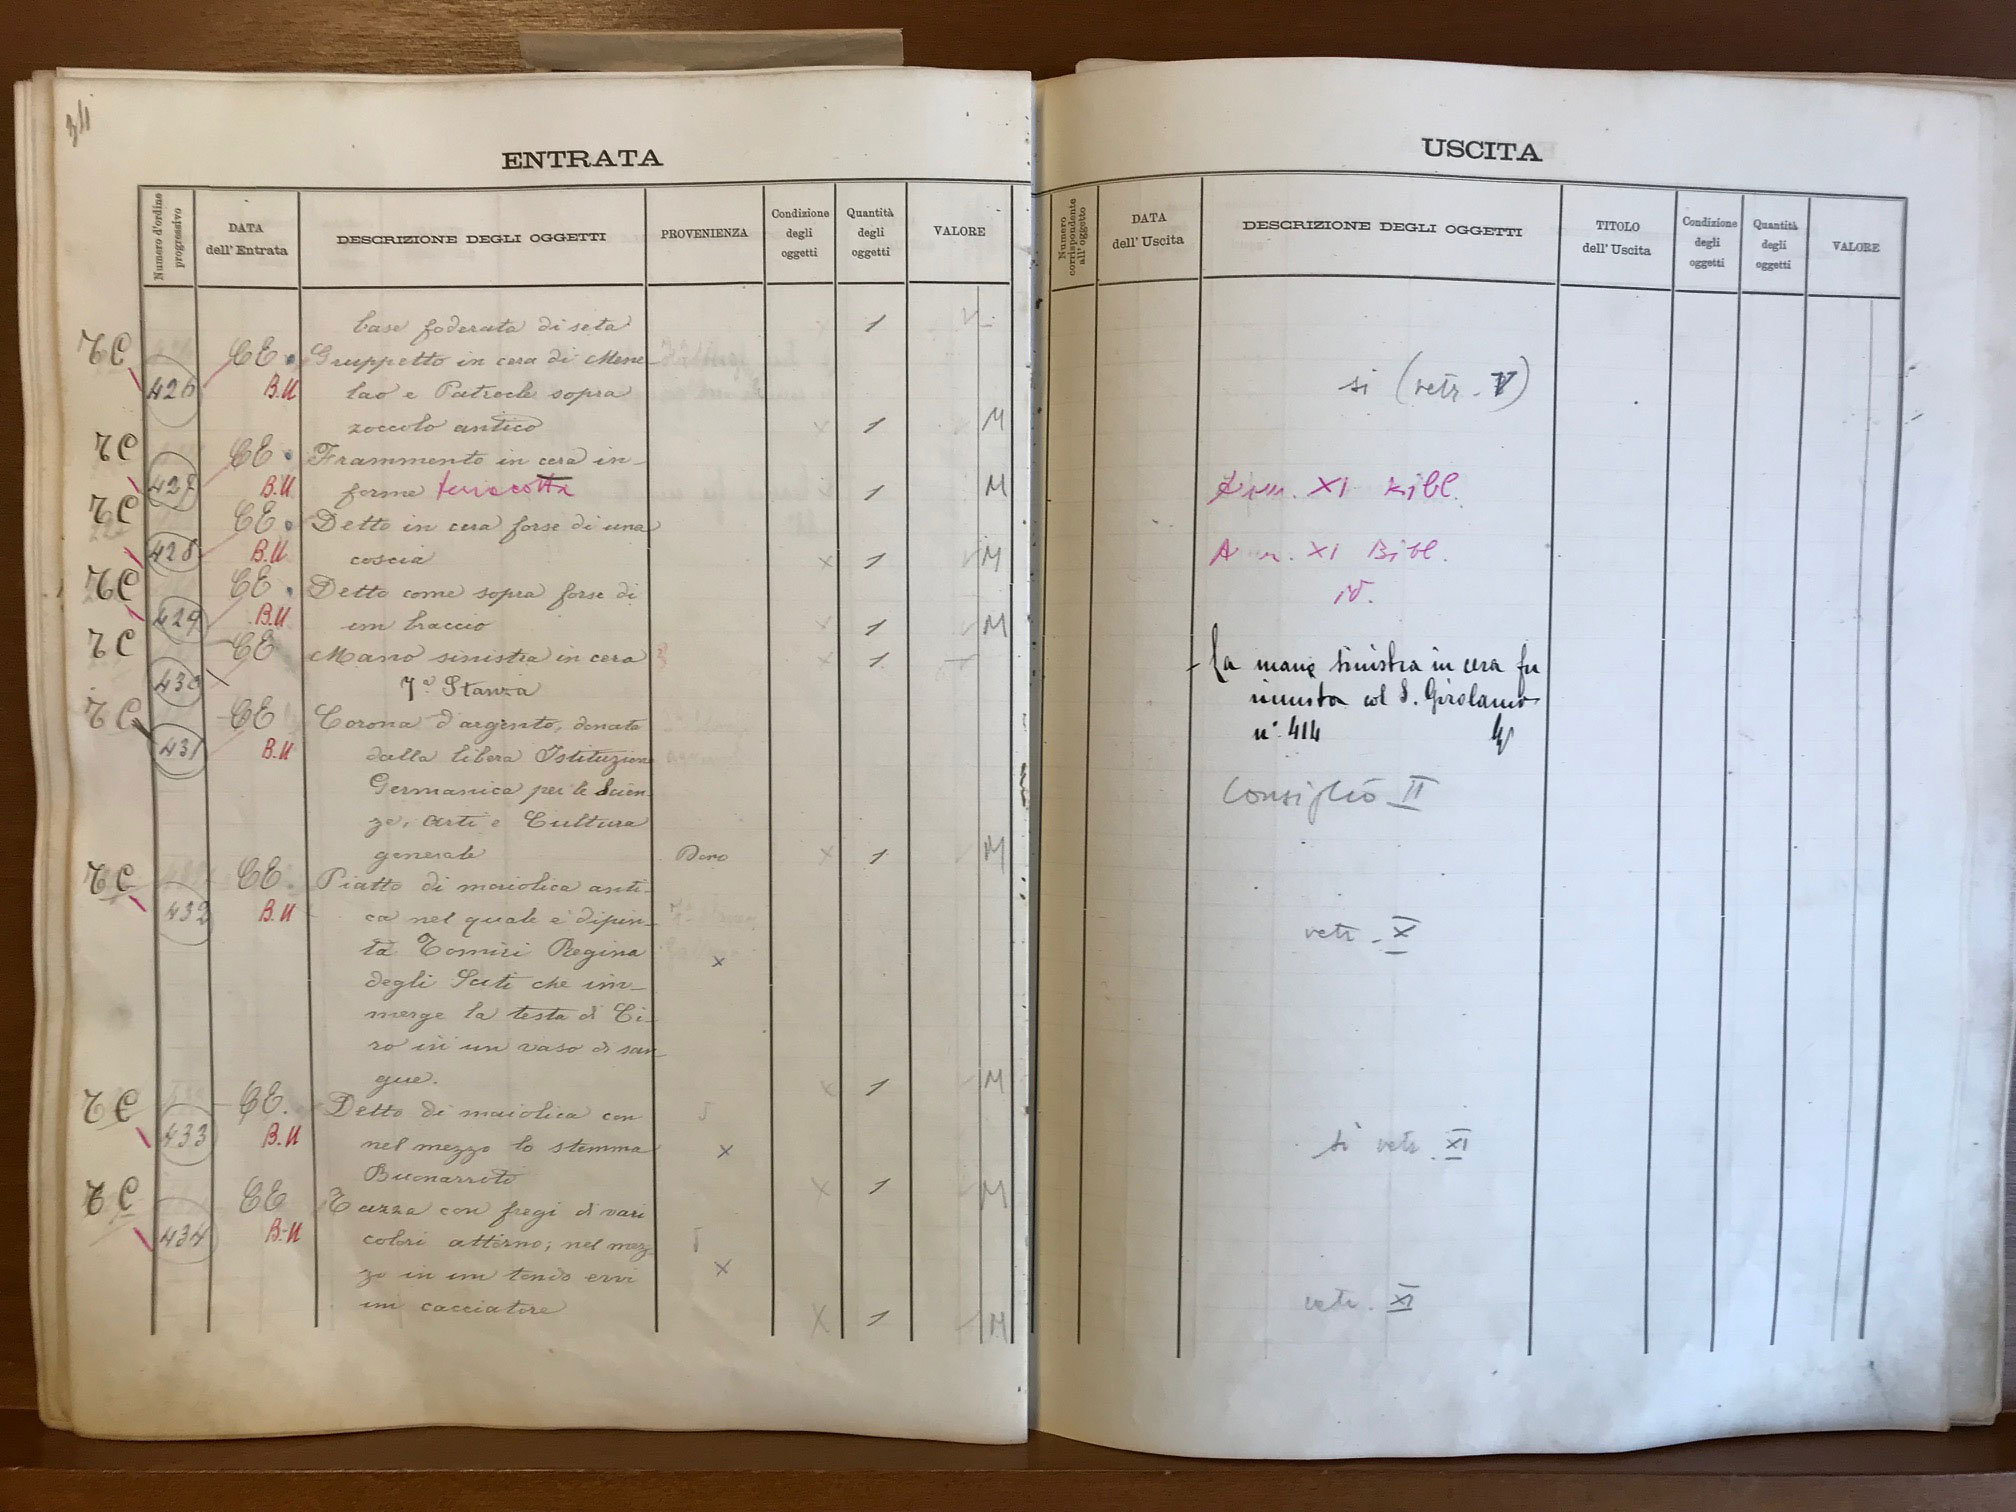 34
ENTRATA
Numero d'ordine progressivo
DATA dell' Entrata
DESCRIZIONE DEGLI OGGETTI
PROVENIENZA
Condizione degli oggetti
Quantità degli oggetti
VALORE
base foderata di seta 1
TC CE Gruppetto in cera di Mene
426 B.U lao e Patrocle sopra
zoccolo antico × 1 M
TC CE Frammento in cera in-
427 B.U forme terracotta 1 M
TC CE Detto in cera forse di una
428 B.U coscia × 1 M
TC CE Detto come sopra forse di
429 B.U un braccio × 1 M
TC CE Mano sinistra in cera × 1
430 7ª Stanza
TC CE Corona d'argento, donata
431 B.U dalla libera Istituzione
Germanica per le Scien-
ze, Arti e Cultura
generale Dono × 1 M
TC CE Piatto di maiolica anti-
432 B.U ca nel quale e' dipin-
ta Tomiri Regina ×
degli Sciti che im-
merge la testa di Ci-
ro in un vaso di san-
gue. × 1 M
TC CE. Detto di maiolica con
433 B.U nel mezzo lo stemma ×
Buonarroti × 1 M
TC CE Tazza con fregi di vari
434 B.U colori attorno; nel mez-
zo in un tondo evvi ×
un cacciatore × 1 M
USCITA
Numero corrispondente all'oggetto
DATA dell' Uscita
DESCRIZIONE DEGLI OGGETTI
TITOLO dell' Uscita
Condizione degli oggetti
Quantità degli oggetti
VALORE
si (vetr. V)
XI Bibl.
XI Bibl.
id.
- la mano sinistra in cera fu
riunita col S. Girolamo
n° 414
Consiglio II
vetr. X
si vetr. XI
vetr. XI